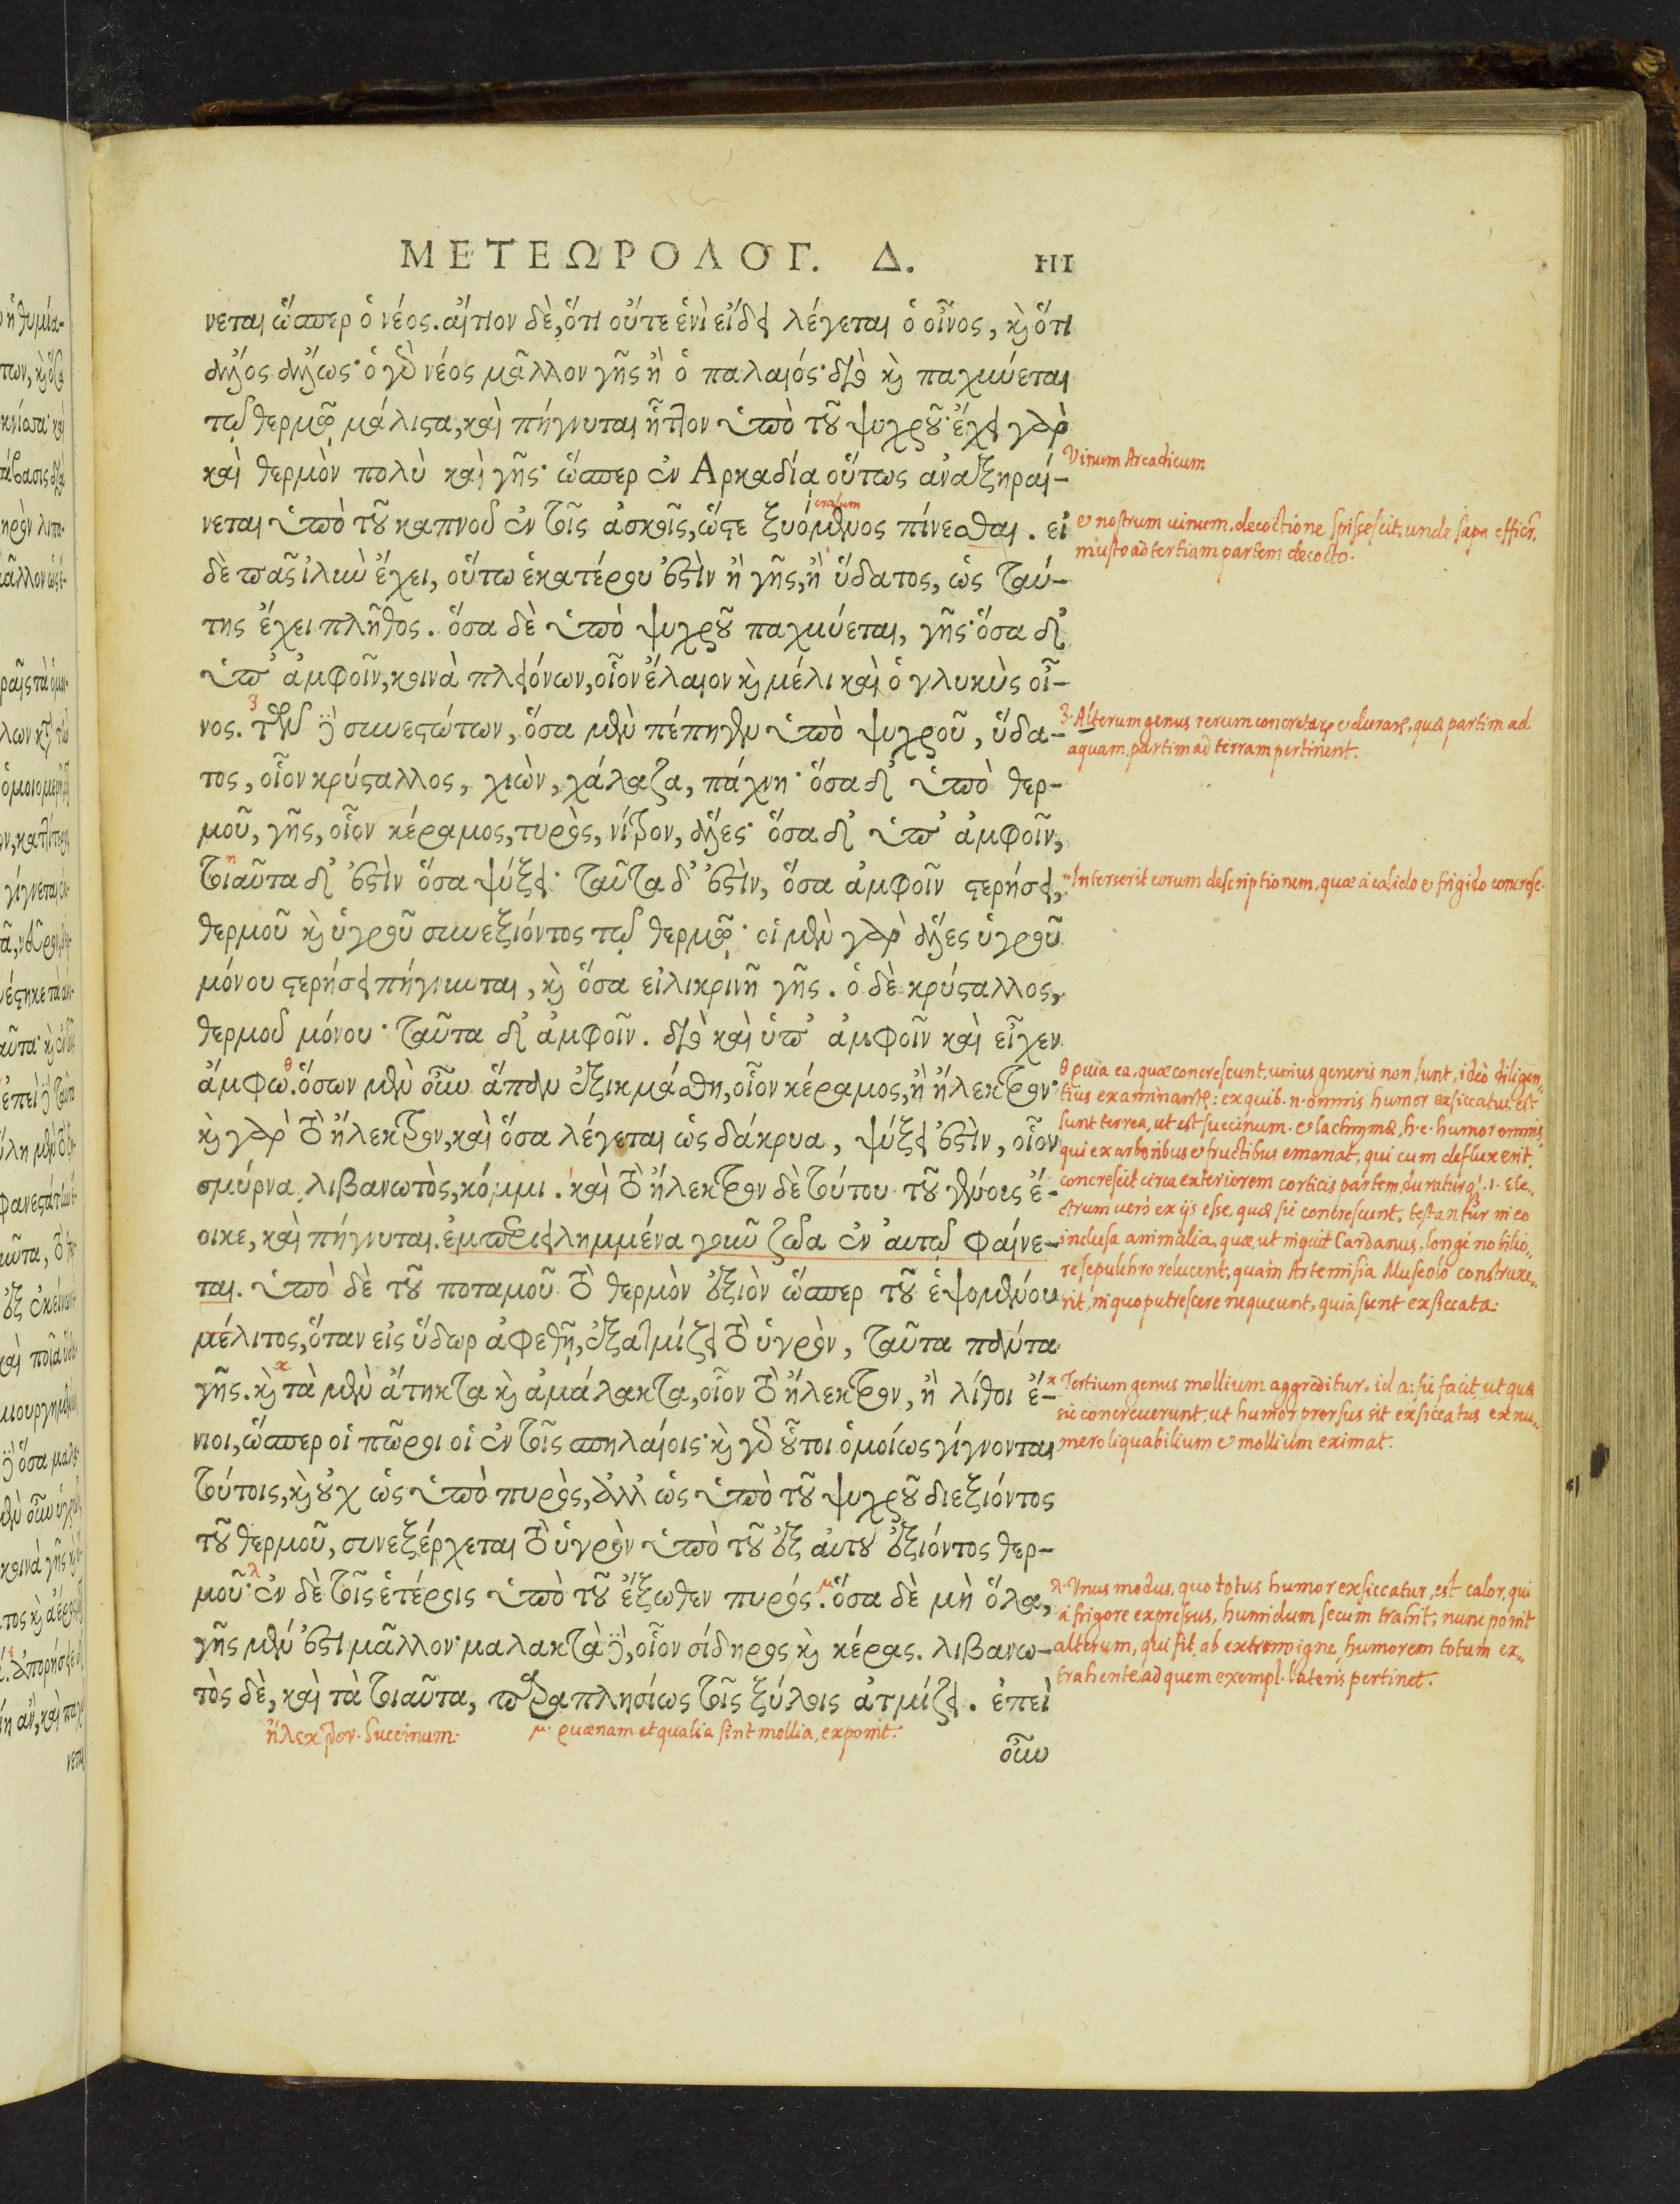 ΜΕΤΕΩΡΟΛΟΓ. Δ. 111
νεται ὥσπερ ὁ νέος. αἴτιον δὲ, ὅτι οὔτε ἑνὶ εἴδει λέγεται ὁ οἶνος, καὶ ὅτι
ἄλλος ἄλλως· ὁ γὰρ νέος μᾶλλον γῆς ἢ ὁ παλαιός· διὸ καὶ παχύνεται
τῷ θερμῷ μάλιστα, καὶ πήγνυται ἧττον ὑπὸ τοῦ ψυχροῦ· ἔχει γὰρ
καὶ θερμὸν πολὺ καὶ γῆς· ὥσπερ ἐν Ἀρκαδία οὕτως ἀναξηραί-
Vinum Arcadicum
νεται ὑπὸ τοῦ καπνοῦ ἐν τοῖς ἀσκοῖς, ὥστε ξυόμενος πίνεσθαι. εἰ
rasum
& nostrum uinum. decoctione spissescit, unde sapa effici,
musto ad tertiam partem decocto.
δὲ πᾶς ἰλὺν ἔχει, οὕτω ἑκατέρου ἐστὶν ἢ γῆς, ἢ ὕδατος, ὡς ταύ-
της ἔχει πλῆθος. ὅσα δὲ ὑπὸ ψυχροῦ παχύνεται, γῆς· ὅσα δ'
ὑπ' ἀμφοῖν, κοινὰ πλειόνων, οἷον ἔλαιον καὶ μέλι καὶ ὁ γλυκὺς οἶ-
νος. τῶν δὲ συνεστώτων, ὅσα μὲν πέπηγεν ὑπὸ ψυχροῦ, ὕδα-
3. Alterum genus rerum concretarum & durarum, quæ partim ad
aquam, partim ad terram pertinent.
τος, οἷον κρύσταλλος, χιὼν, χάλαζα, πάχνη· ὅσα δ' ὑπὸ θερ-
μοῦ, γῆς, οἷον κέραμος, τυρὸς, νίτρον, ἅλες· ὅσα δ' ὑπ' ἀμφοῖν,
τοιαῦτα δ' ἐστὶν ὅσα ψύξει· ταῦτα δ' ἐστὶν, ὅσα ἀμφοῖν στερήσει,
η Interserit eorum descriptionem, quæ à calido & frigido concresc.
θερμοῦ καὶ ὑγροῦ συνεξιόντος τῷ θερμῷ· οἱ μὲν γὰρ ἅλες ὑγροῦ
μόνου στερήσει πήγνυνται, καὶ ὅσα εἰλικρινῆ γῆς. ὁ δὲ κρύσταλλος,
θερμοῦ μόνου· ταῦτα δ' ἀμφοῖν. διὸ καὶ ὑπ' ἀμφοῖν καὶ εἶχεν
ἄμφω. ὅσων μὲν οὖν ἅπαν ἐξικμάσθη, οἷον κέραμος, ἢ ἤλεκτρον·
θ Quia ea, quæ concrescunt, unius generis non sunt, ideò diligen-
tius examinantur: ex quib. n. omnis humor exsiccatus est
καὶ γὰρ τὸ ἤλεκτρον, καὶ ὅσα λέγεται ὡς δάκρυα, ψύξει ἐστὶν, οἷον
sunt terrea, ut est succinum. & lachrymæ, h. e. humor omnis,
qui ex arboribus & fructibus emanat, qui cum defluxerit,
σμύρνα, λιβανωτὸς, κόμμι. καὶ τὸ ἤλεκτρον δὲ τούτου τοῦ γένους ἔ-
concrescit circa exteriorem corticis partem, duraturq́. ι. Ele-
ctrum uerò ex ijs esse, quæ sic concrescunt, testantur in eo
οικε, καὶ πήγνυται. ἐμπεριειλημμένα γοῦν ζῶα ἐν αὐτῷ φαίνε-
inclusa animalia, quæ, ut inquit Cardanus, longè nobilio-
re sepulchro relucent, quàm Artemisia Museolo construxe-
ται. ὑπὸ δὲ τοῦ ποταμοῦ τὸ θερμὸν ἐξιὸν ὥσπερ τοῦ ἑψομένου
rit, in quo putrescere nequeunt, quia sunt exsiccata:
μέλιτος, ὅταν εἰς ὕδωρ ἀφεθῇ, ἐξατμίζει τὸ ὑγρὸν, ταῦτα πάντα
γῆς. καὶ τὰ μὲν ἄτηκτα καὶ ἀμάλακτα, οἷον τὸ ἤλεκτρον, ἢ λίθοι ἔ-
κ Tertium genus mollium aggreditur, id a: sic facit, ut quæ
sic concreuerunt, ut humor prorsus sit exsiccatus ex nu-
νιοι, ὥσπερ οἱ πῶροι οἱ ἐν τοῖς σπηλαίοις· καὶ γὰρ οὗτοι ὁμοίως γίγνονται
mero liquabilium & mollium eximat.
τούτοις, καὶ οὐχ ὡς ὑπὸ πυρὸς, ἀλλ' ὡς ὑπὸ τοῦ ψυχροῦ διεξιόντος
τοῦ θερμοῦ, συνεξέρχεται τὸ ὑγρὸν ὑπὸ τοῦ ἐξ αὐτοῦ ἐξιόντος θερ-
μοῦ· ἐν δὲ τοῖς ἑτέροις ὑπὸ τοῦ ἔξωθεν πυρός. ὅσα δὲ μὴ ὅλα,
λ. Vnus modus, quo totus humor exsiccatur, est calor, qui
à frigore expressus, humidum secum trahit; nunc ponit
γῆς μέν ἐστι μᾶλλον· μαλακτὰ δὲ, οἷον σίδηρος καὶ κέρας. λιβανω-
alterum, qui fit ab extremo igne, humorem totum ex-
trahente. ad quem exempl. lateris pertinet.
τὸς δὲ, καὶ τὰ τοιαῦτα, παραπλησίως τοῖς ξύλοις ἀτμίζει. ἐπεὶ
ἤλεκτρον. Succinum. μ. quænam et qualia sint mollia, exponit.
οὖν